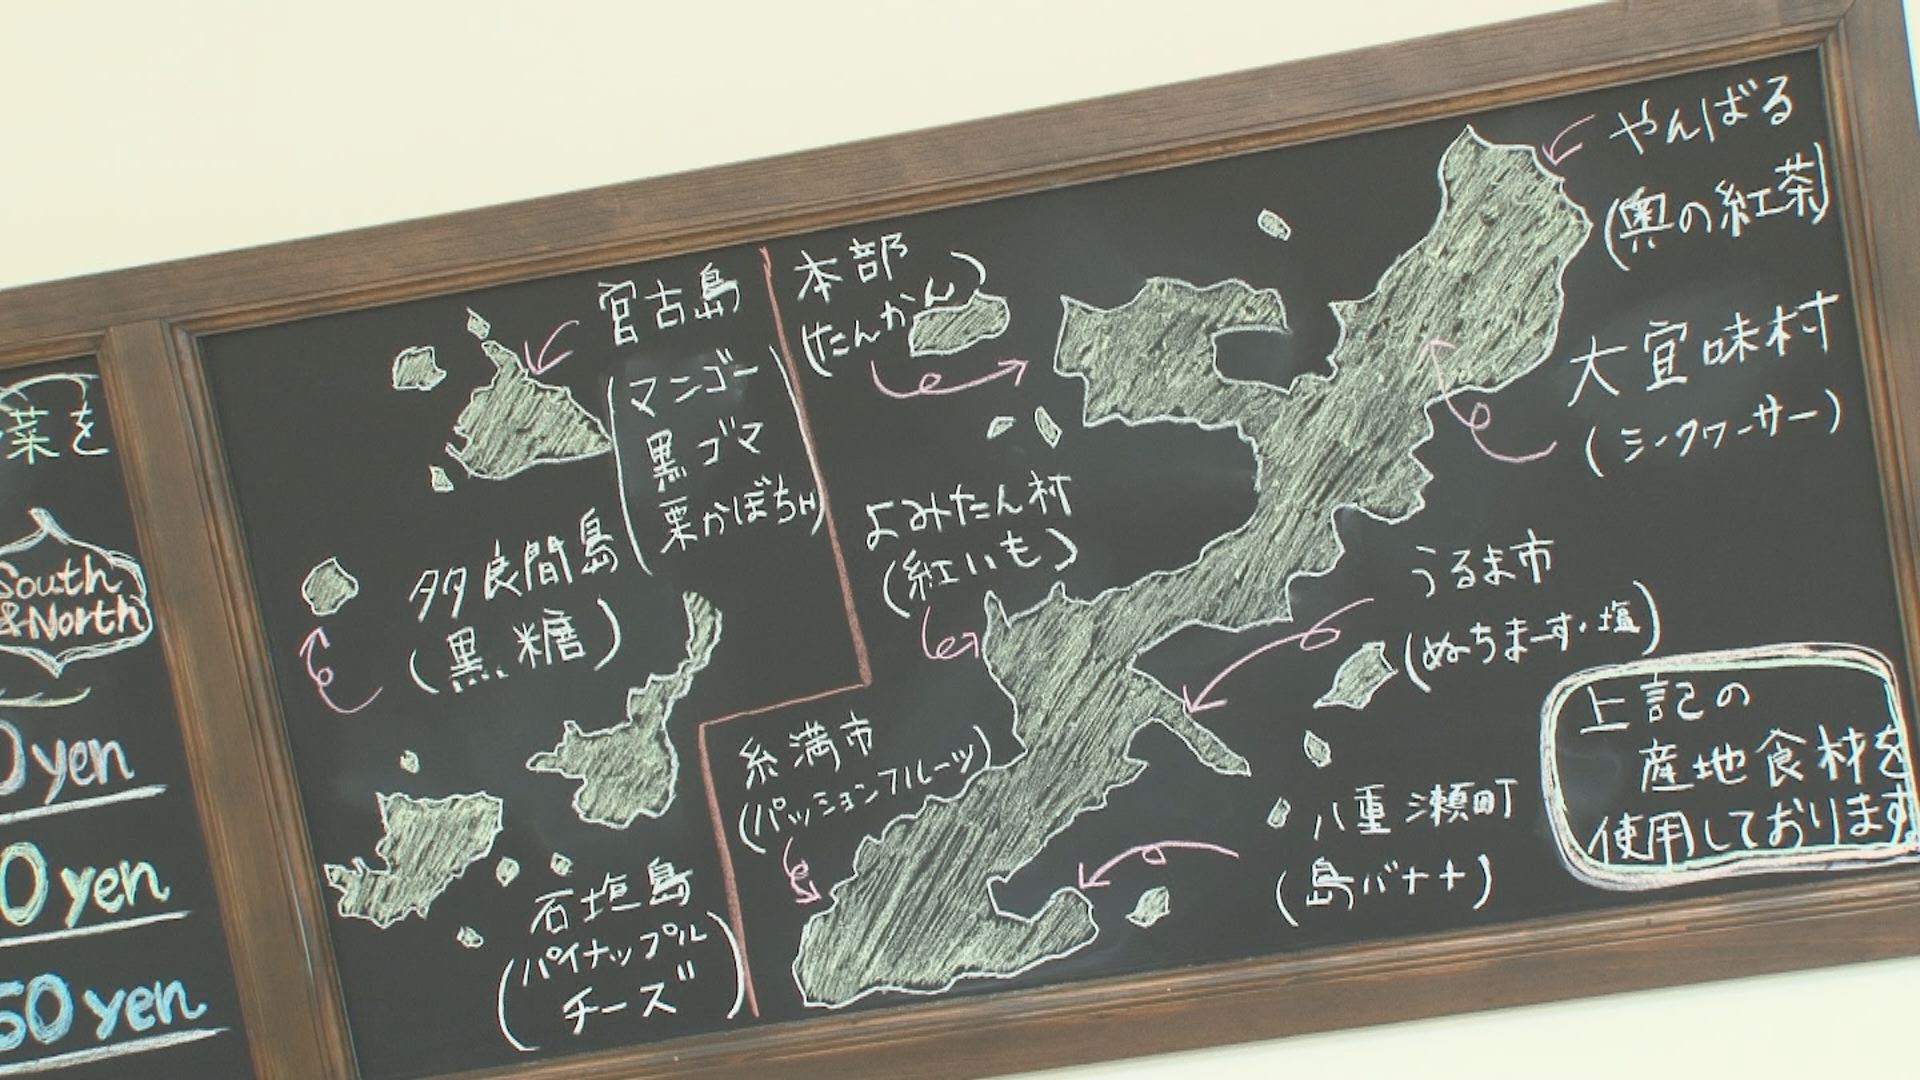 菜を
South
&North
0yen
0yen
50yen
宮古島
(マンゴー
黒ゴマ
栗かぼちゃ)
多良間島
(黒糖)
石垣島
(パイナップル
チーズ)
本部
(たんかん)
よみたん村
(紅いも)
糸満市
(パッションフルーツ)
やんばる
(奥の紅茶)
大宜味村
(シークヮーサー)
うるま市
(ぬちまーす・塩)
八重瀬町
(島バナナ)
上記の
産地食材を
使用しております